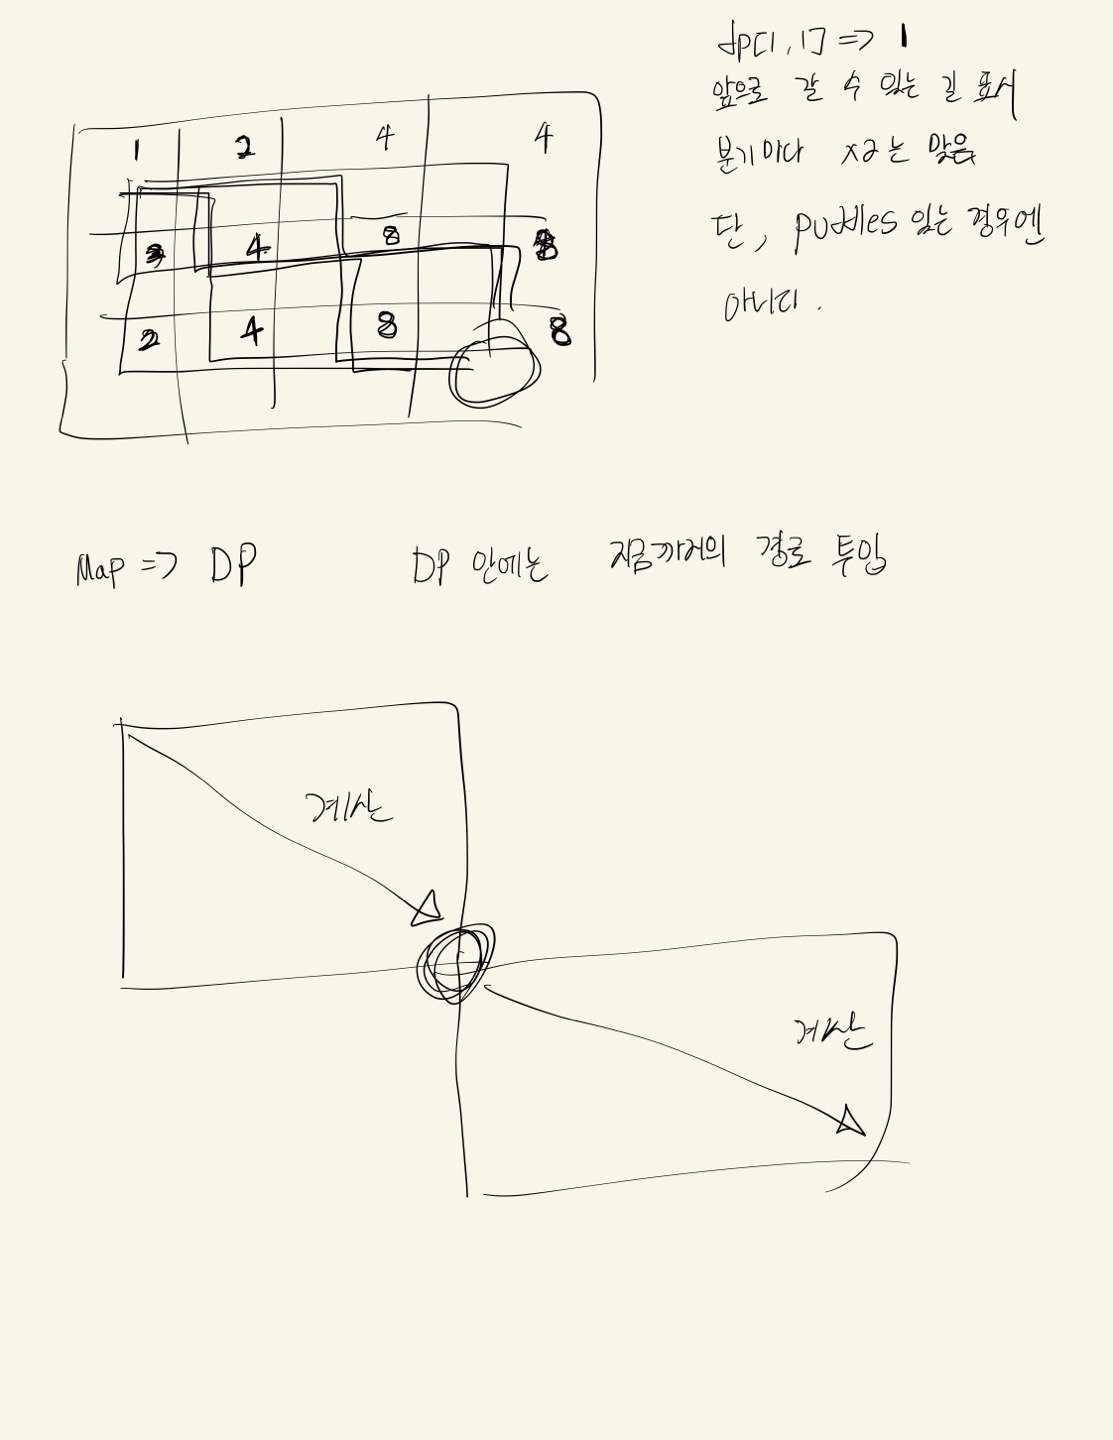 dp[1,1] => 1
앞으로 갈 수 있는 길 표시
분기마다 x2는 맞음
단, puddles 있는 경우엔
아니다.
1 2 4 4
4 8
2 4 8 8
Map => DP DP 안에는 지금까지의 경로 투입
계산
계산